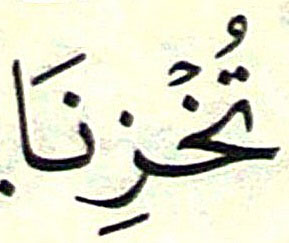 تُخْزِنَا